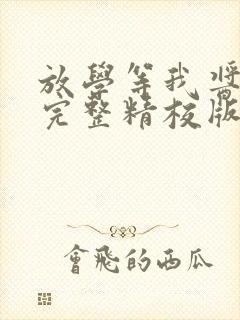 放學等我酱
完整精校版
會飛的西瓜